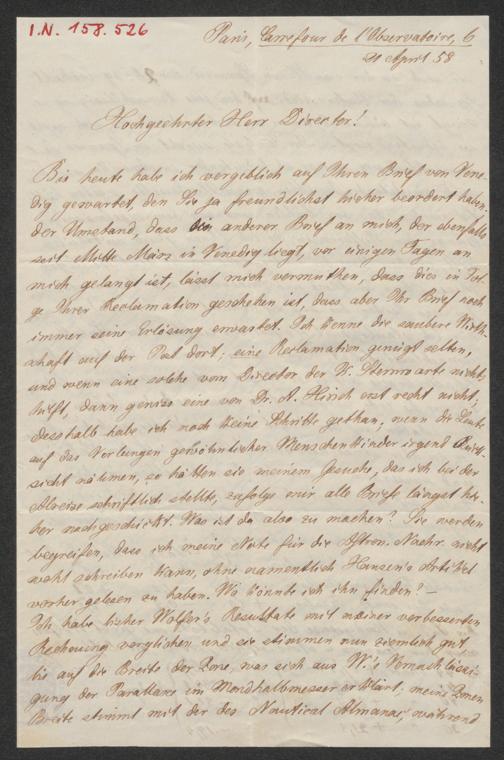 I.N. 158.526
Paris, Carrefour de l'Observatoire, 6
21 April 58
Hochgeehrter Herr Director!
Bis heute habe ich vergeblich auf Ihren Brief von Vene-
dig gewartet, den Sie ja freundlichst hieher beordert haben;
der Umstand, dass ein anderer Brief an mich, der ebenfalls
seit Mitte März in Venedig liegt, vor einigen Tagen an
mich gelangt ist, lässt mich vermuthen, dass dies in Fol-
ge Ihrer Reclamation geschehen ist, dass aber Ihr Brief noch
immer seine Erlösung erwartet. Ich kenne die saubere Wirth-
schaft auf der Post dort; eine Reclamation genügt selten,
und wenn eine solche vom Director der W. Sternwarte nichts
hilft, dann gewiss eine von Dr. A. Hirsch erst recht nicht;
desshalb habe ich noch keine Schritte gethan; wenn die Leute
auf das Verlangen gewöhnlicher Menschenkinder irgend Rück-
sicht nähmen, so hätten sie meinem Gesuche, das ich bei der
Abreise schriftlich stellte, zufolge mir alle Briefe längst hie-
her nachgeschickt. Was ist da also zu machen? Sie werden
begreifen, dass ich meine Note für die Astron. Nachr. nicht
wohl schreiben kann, ohne namentlich Hansen's Artikel
vorher gelesen zu haben. Wo könnte ich ihn finden? —
Ich habe bisher Wolfer's Resultate mit meiner verbesserten
Rechnung verglichen und sie stimmen nun ziemlich gut
bis auf die Breite der Zone, was sich aus W.'s Vernachlässi-
gung der Parallaxe im Mondhalbmesser erklärt; meine Zonen
Breite stimmt mit der des Nautical Almanac, während